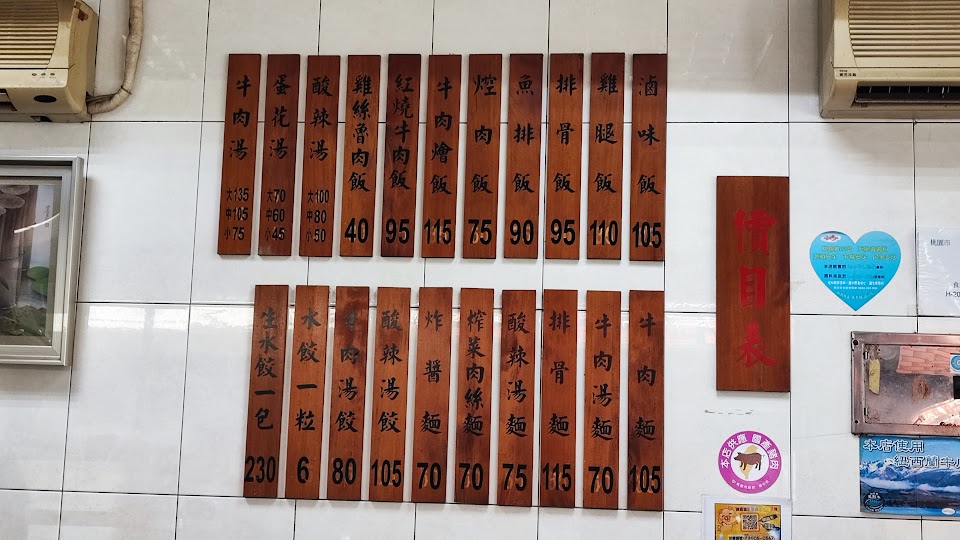 價目表
滷味飯 105
雞腿飯 110
排骨飯 95
魚排飯 90
焢肉飯 75
牛肉燴飯 115
紅燒牛肉飯 95
雞絲魯肉飯 40
酸辣湯 大100 中80 小50
蛋花湯 大70 中60 小45
牛肉湯 大135 中105 小75
牛肉麵 105
牛肉湯麵 70
排骨麵 115
酸辣湯麵 75
榨菜肉絲麵 70
炸醬麵 70
酸辣湯餃 105
肉湯餃 80
水餃一粒 6
生水餃一包 230
桃園市
本店供應 國產豬肉
本店使用
紐西蘭牛